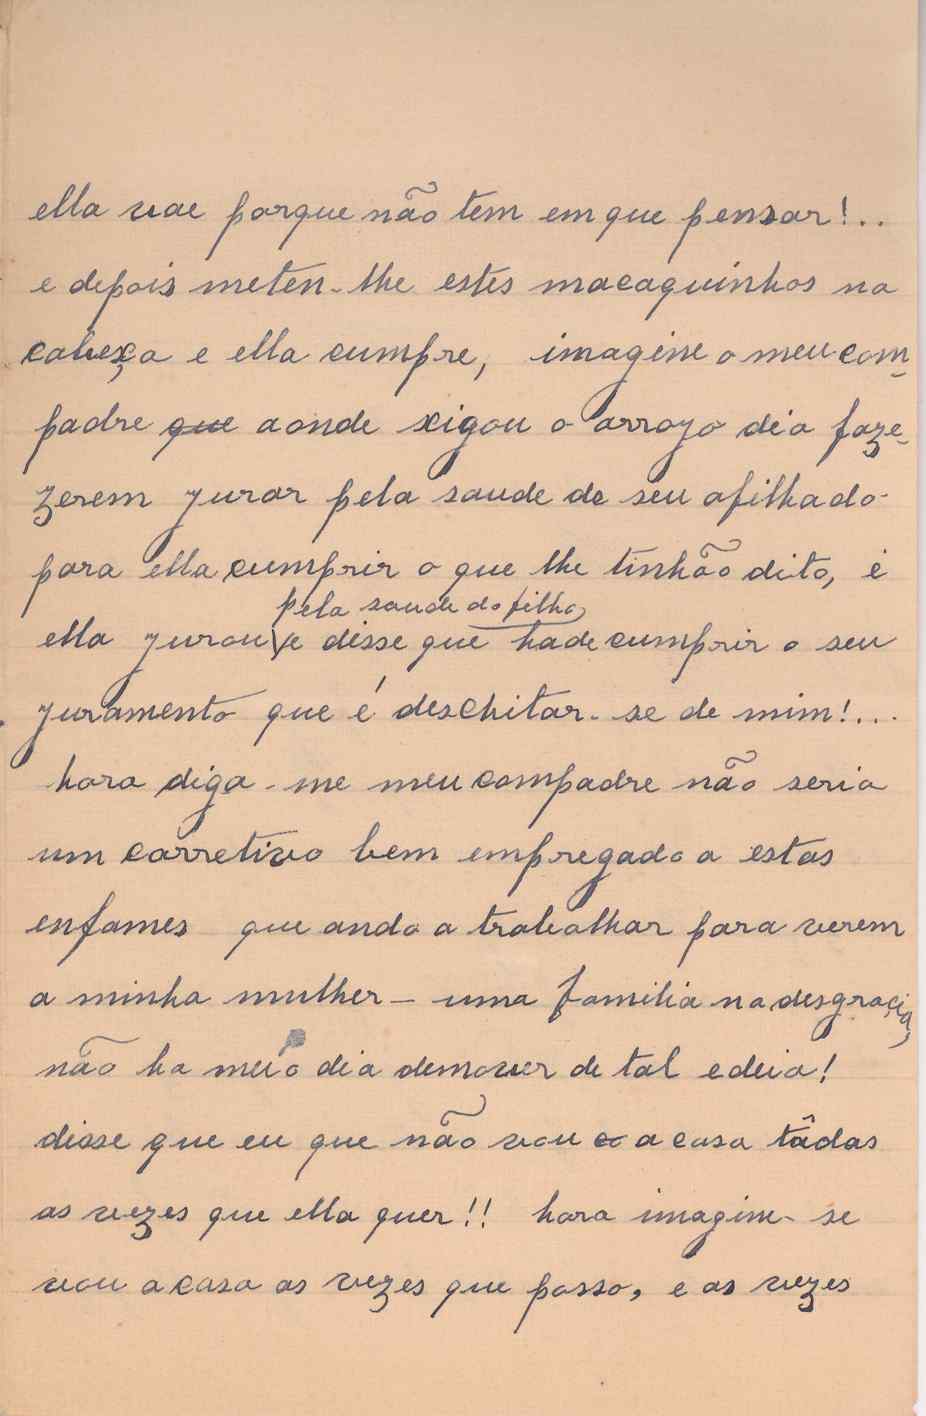 ella vae porque não tem em que pensar!..
e depois meten-lhe estes macaquinhos na
cabeça e ella cumpre, imagine o meu com-
padre que aonde xigou o arrojo dia faze-
zerem jurar pela saude de seu afilhado
para ella cumprir o que lhe tinhão dito, é
pela saude do filho
ella jurou e disse que hade cumprir o seu
juramento que é deschitar-se de mim!...
hora diga-me meu compadre não seria
um corretivo bem empregado a estas
enfames que anda a trabalhar para verem
a minha mulher – uma familia na desgraçia,
não ha meio dia demover de tal edeia!
disse que eu que não vou a casa tâdas
as vezes que ella quer!! hora imagine-se
vou a casa as vezes que posso, e as vezes